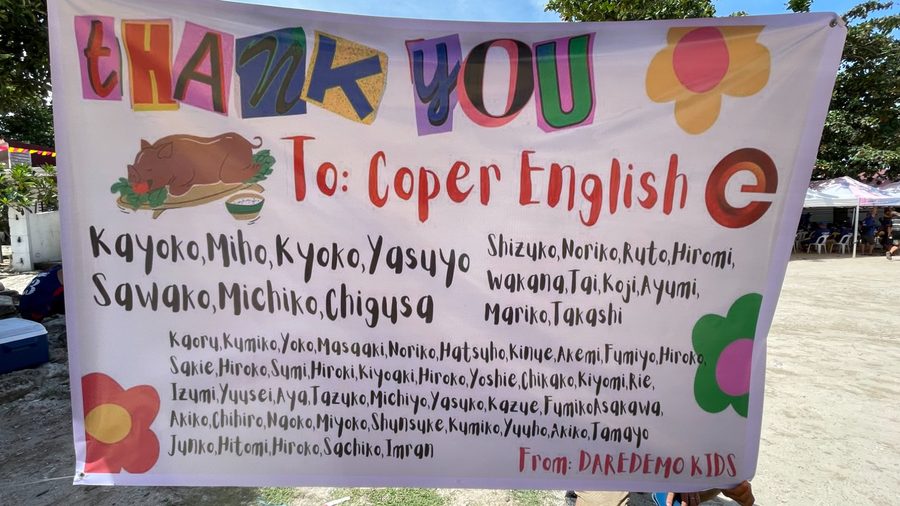 tHANK YOU
To: Coper English e
Kayoko,Miho,Kyoko,Yasuyo
Sawako,Michiko,Chigusa
Shizuko,Noriko,Ruto,Hiromi,
Wakana,Tai,Koji,Ayumi,
Mariko,Takashi
Kaoru,Kumiko,Yoko,Masaaki,Noriko,Hatsuho,Kinue,Akemi,Fumiyo,Hiroko,
Sakie,Hiroko,Sumi,Hiroki,Kiyoaki,Hiroko,Yoshie,Chikako,Kiyomi,Rie,
Izumi,Yuusei,Aya,Tazuko,Michiyo,Yasuko,Kazue,FumikoAsakawa,
Akiko,Chihiro,Naoko,Miyoko,Shunsuke,Kumiko,Yuuho,Akiko,Tamayo
Junko,Hitomi,Hiroko,Sachiko,Imran
From: DAREDEMO KIDS